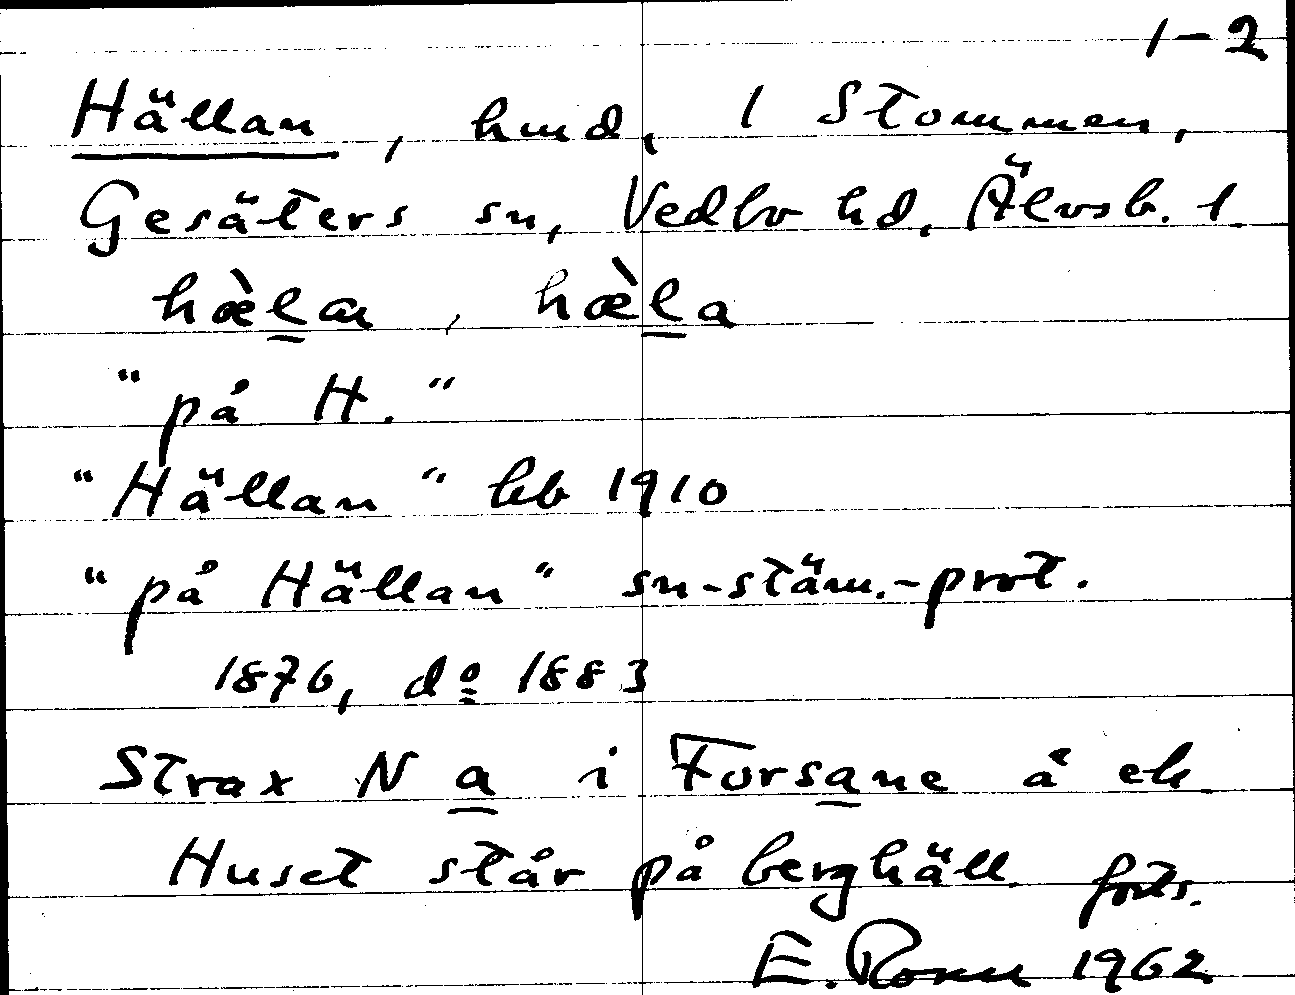 1-2
Hällan, hmd, 1 Stommen,
Gesäters sn, Vedbo hd, Älvsb. l
hæ̀lan, hæ̀la
"på H."
"Hällan" hb 1910
"på Hällan" sn-stäm.-prot.
1876, dº 1883
Strax N a i Forsane å ek
Huset står på berghäll. forts.
E. 1962